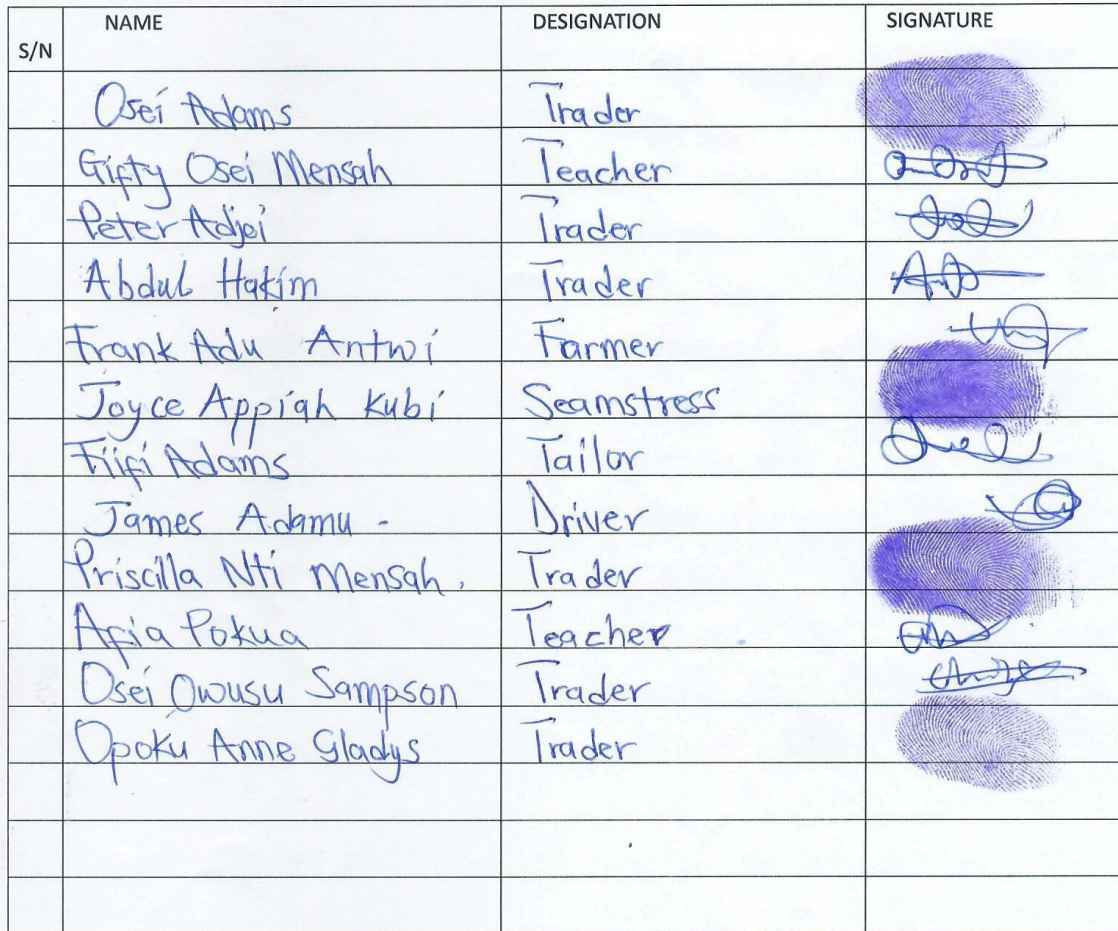 S/N NAME DESIGNATION SIGNATURE
Osei Adams Trader
Gifty Osei Mensah Teacher
Peter Adjei Trader
Abdul Hakim Trader
Frank Adu Antwi Farmer
Joyce Appiah Kubi Seamstress
Fiifi Adams Tailor
James Adamu - Driver
Priscilla Nti Mensah. Trader
Afia Pokua Teacher
Osei Owusu Sampson Trader
Opoku Anne Gladys Trader